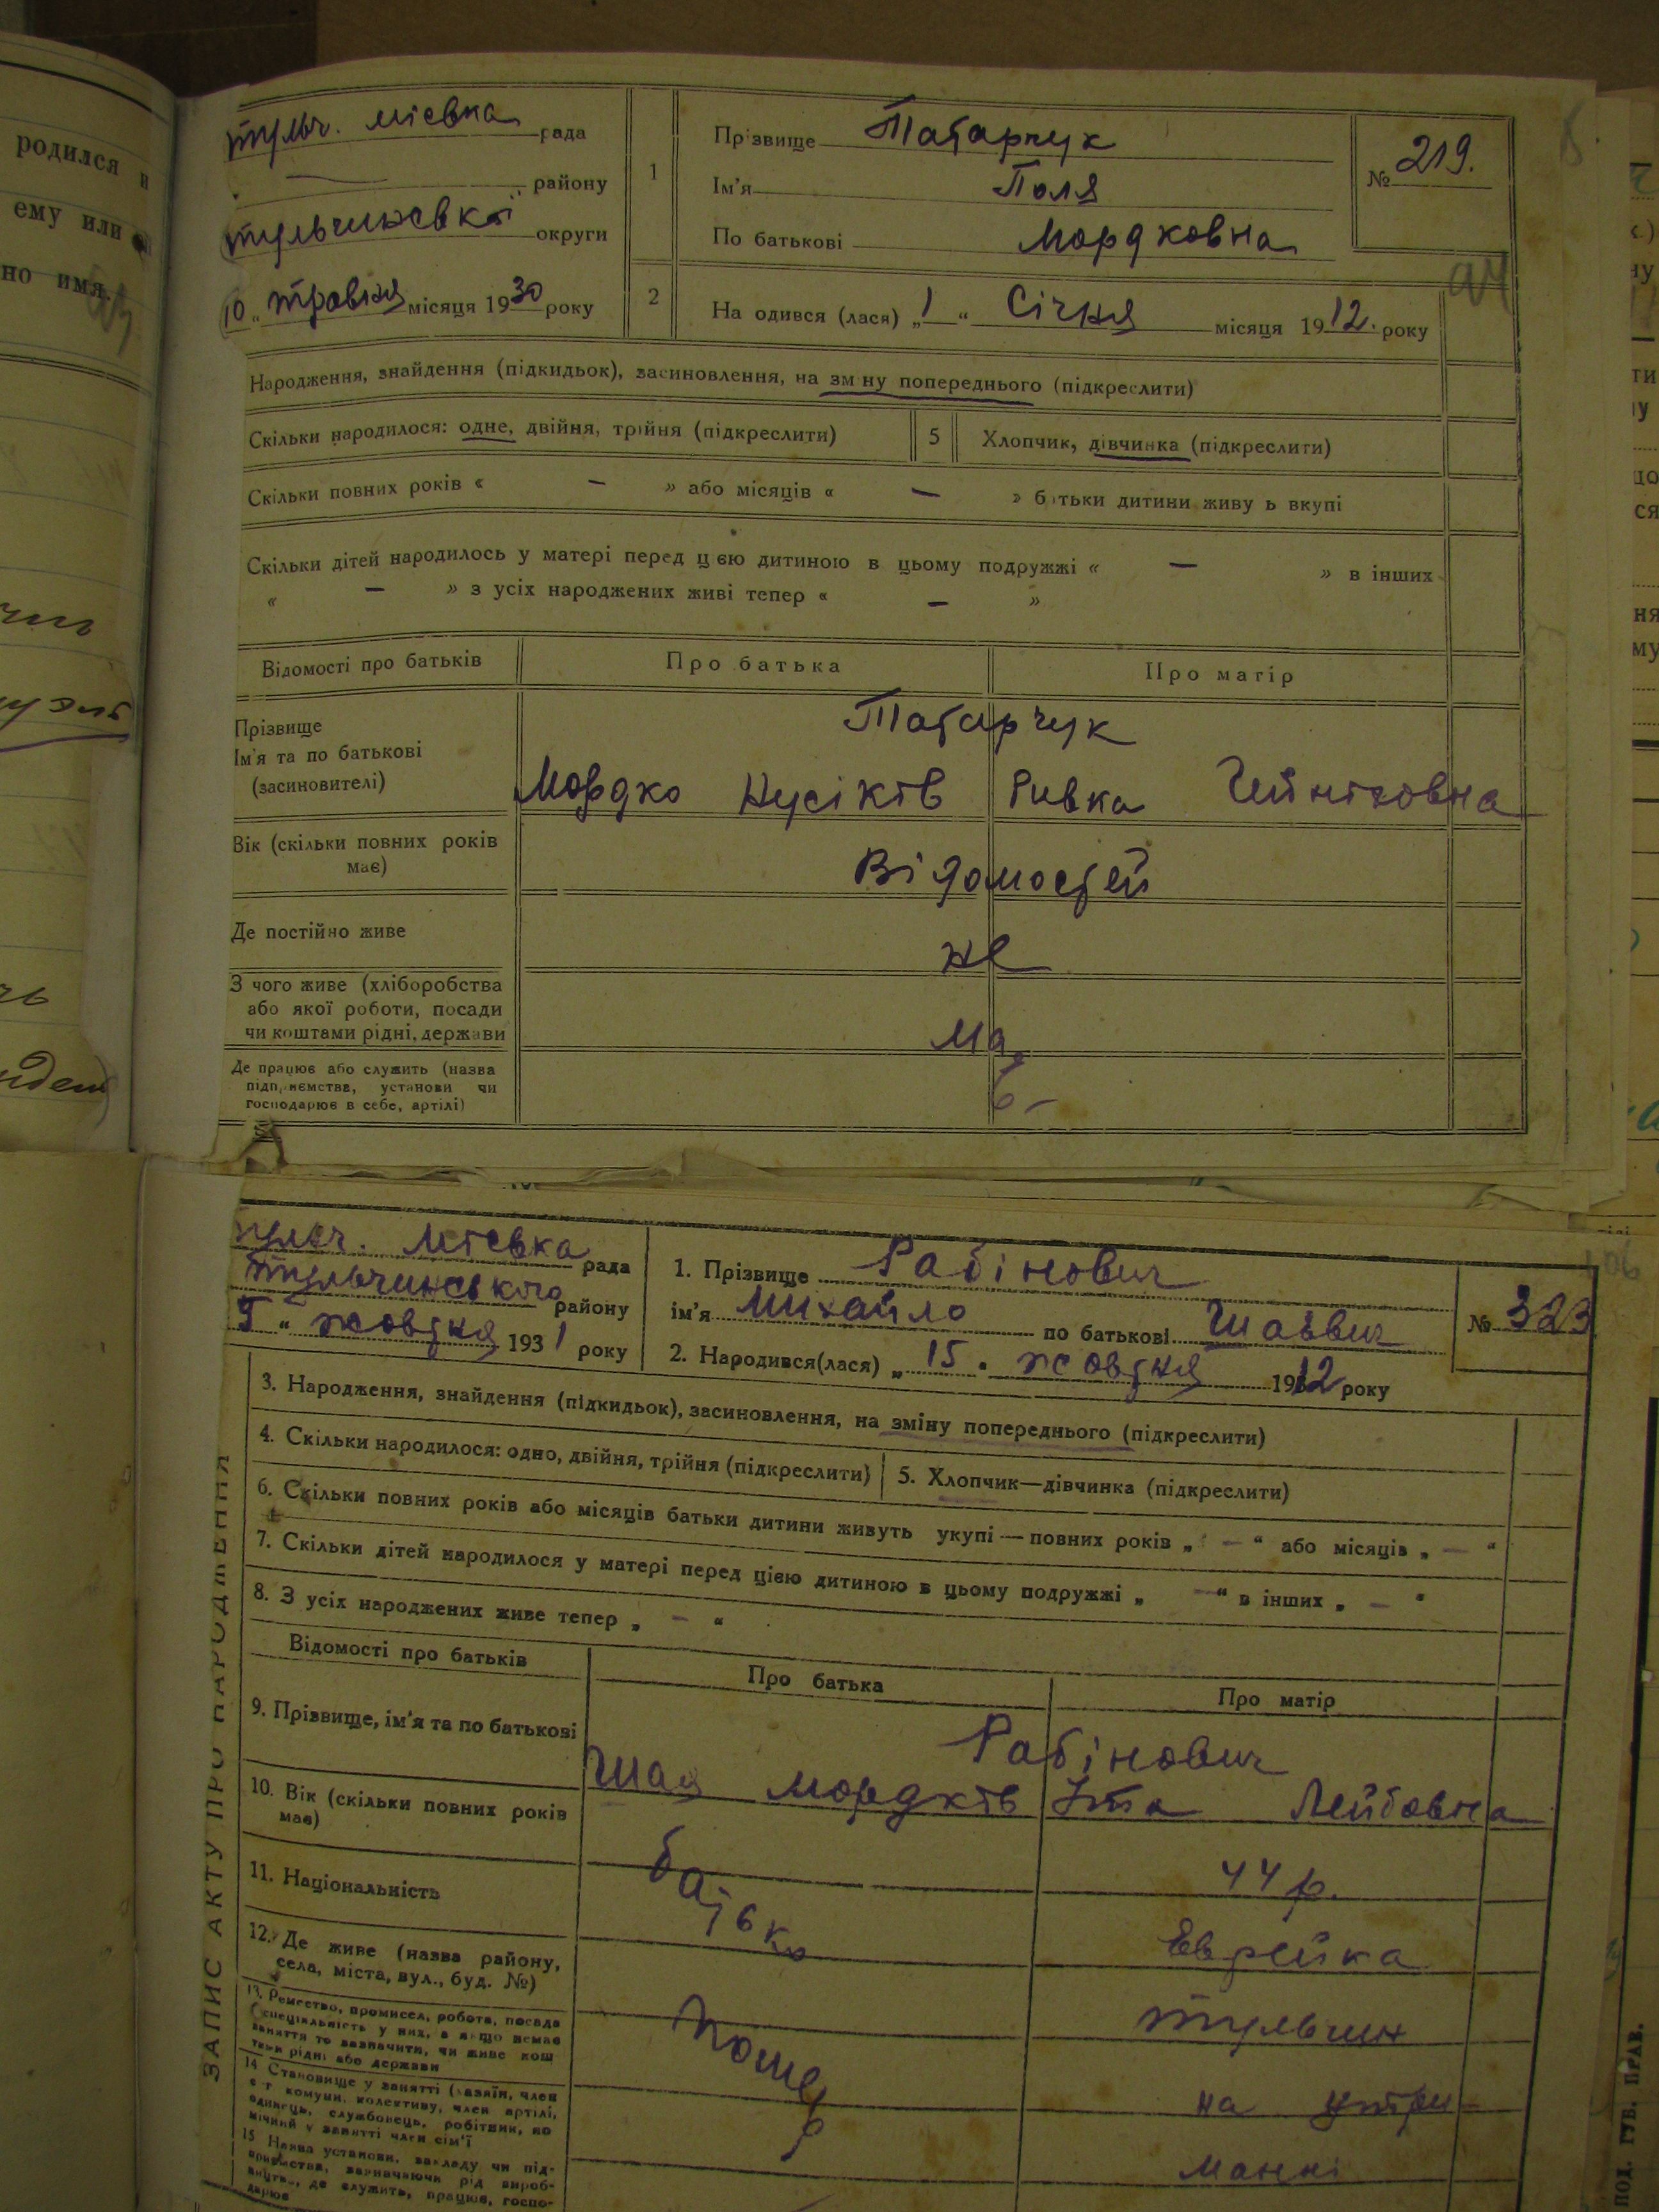 родился и
ему или
но имя.
тульч. міська рада
району
тульчинської округи
10 „ травня місяця 1930 року
1
Прізвище Татарчук
Ім'я Поля
По батькові Мордковна
№ 219.
2
На одився (лася) „1“ Січня місяця 1912. року
Народження, знайдення (підкидьок), засиновлення, на зм ну попереднього (підкреслити)
Скільки народилося: одне, двійня, трійня (підкреслити)
5
Хлопчик, дівчинка (підкреслити)
Скільки повних років « — » або місяців « — » б тьки дитини живу ь вкупі
Скільки дітей народилось у матері перед ц єю дитиною в цьому подружжі « — » в інших
« — » з усіх народжених живі тепер « — »
Відомості про батьків
Про батька
Про матір
Прізвище
Ім'я та по батькові
(засиновителі)
Татарчук
Мордко Нусіків Ривка
Вік (скільки повних років
має)
Відомостей
Де постійно живе
не
З чого живе (хліборобства
або якої роботи, посади
чи коштами рідні, держави
має
Де працює або служить (назва
підп иємства, установи чи
господарює в себе, артілі)
тульч. Міська рада
тульчинського району
5 “ жовтня 1931 року
1. Прізвище Рабінович
ім'я Михайло по батькові Шаввич
№ 323
2. Народився(лася) „ 15 “ жовтня 1912 року
3. Народження, знайдення (підкидьок), засиновлення, на зміну попереднього (підкреслити)
4. Скільки народилося: одно, двійня, трійня (підкреслити)
5. Хлопчик—дівчинка (підкреслити)
6. Скільки повних років або місяців батьки дитини живуть укупі — повних років „ — “ або місяців „ — “
7. Скільки дітей народилося у матері перед цією дитиною в цьому подружжі „ — “ в інших „ — “
8. З усіх народжених живе тепер „ — “
Відомості про батьків
Про батька
Про матір
9. Прізвище, ім'я та по батькові
Рабінович
Шая Мордків Іта Лейбовна
10. Вік (скільки повних років
має)
батько
44 р.
11. Національність
Еврейка
12. Де живе (назва району,
села, міста, вул., буд. №)
помер
тульчин
13. Ремество, промисел, робота, посада
(спеціяльність у них, а якщо немає
заняття то зазначити, чи живе кош
тами рідні або держави
на утри-
14 Становище у занятті (хазяїн, член
с-г комуни, колективу, член артілі,
одинець, службовець, робітник, по
мічний у занятті член сім'ї
манні
15 Назва установи, закладу чи під-
приємства, зазначаючи рід вироб-
ництв, де служить, працює, госпо-
дарює
ЗАПИС АКТУ ПРО НАРОДЖЕННЯ
ПОД. ГУБ. ПРАВ.